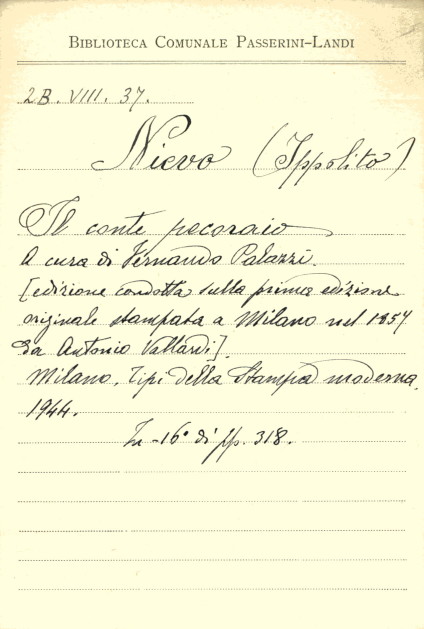 BIBLIOTECA COMUNALE PASSERINI-LANDI
2B. VIII. 37.
Nievo (Ippolito)
Il conte pecoraio
A cura di Fernando Palazzi.
[edizione condotta sulla prima edizione
originale stampata a Milano nel 1857
da Antonio Vallardi].
Milano, Tipi della Stampa moderna,
1944.
In-16° di pp. 318.